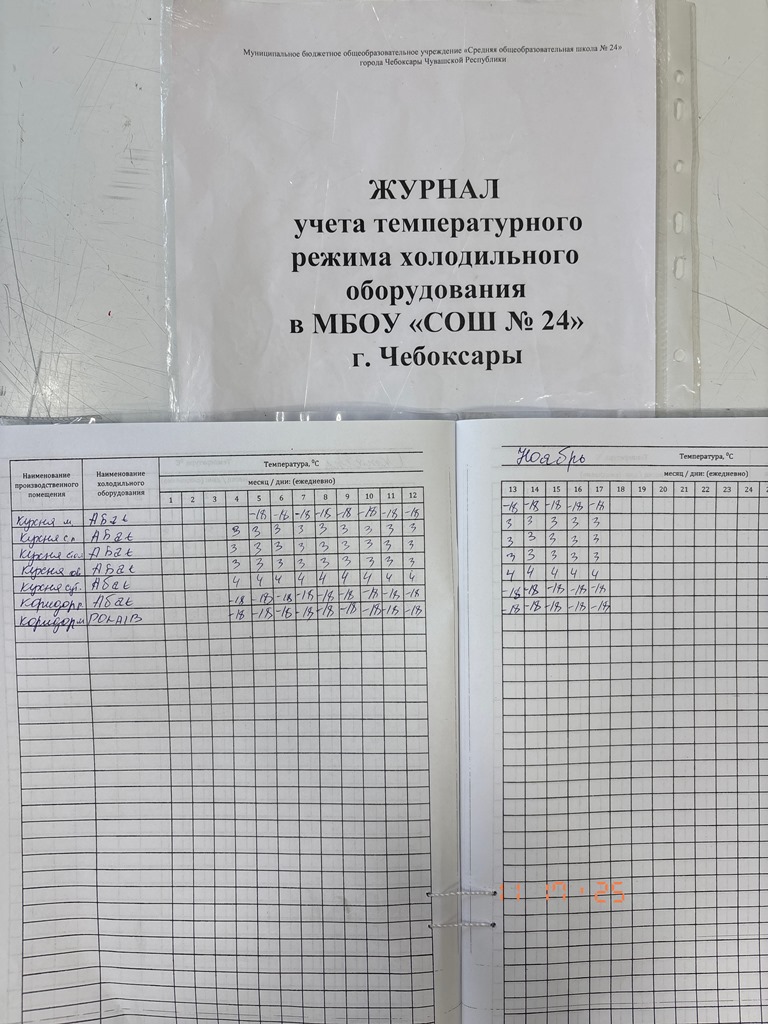 Муниципальное бюджетное общеобразовательное учреждение «Средняя общеобразовательная школа № 24»
города Чебоксары Чувашской Республики
ЖУРНАЛ
учета температурного
режима холодильного
оборудования
в МБОУ «СОШ № 24»
г. Чебоксары
Наименование производственного помещения
Наименование холодильного оборудования
Температура, °С
месяц / дни: (ежедневно)
1 2 3 4 5 6 7 8 9 10 11 12
Кухня м Абат -18 -18 -18 -18 -18 -18 -18 -18
Кухня Абат 3 3 3 3 3 3 3 3 3
Кухня Абат 3 3 3 3 3 3 3 3 3
Кухня Абат 3 3 3 3 3 3 3 3 3
Кухня сут. Абат 4 4 4 4 4 4 4 4 4
Коридор Абат -18 -18 -18 -18 -18 -18 -18 -18 -18
Коридор м POLAIR -18 -18 -18 -18 -18 -18 -18 -18 -18
Ноябрь
Температура, °С
месяц / дни: (ежедневно)
13 14 15 16 17 18 19 20 21 22 23 24
-18 -18 -18 -18 -18
3 3 3 3 3
3 3 3 3 3
3 3 3 3 3
4 4 4 4 4
-18 -18 -18 -18 -18
-18 -18 -18 -18 -18
11 17 '25